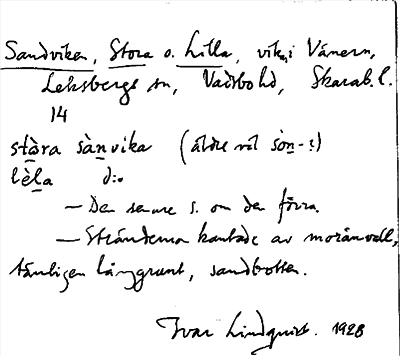 Sandviken, Stora o. Lilla, vik, i Vänern,
Leksbergs sn, Vadsbo hd, Skarab. l.
14
stòra sànvika (äldre väl sòn-?)
lèla d:o
— Den senare s. om den förra.
— Stränderna kantade av moränvall,
tämligen långgrunt, sandbotten.
Ivar Lindquist. 1928